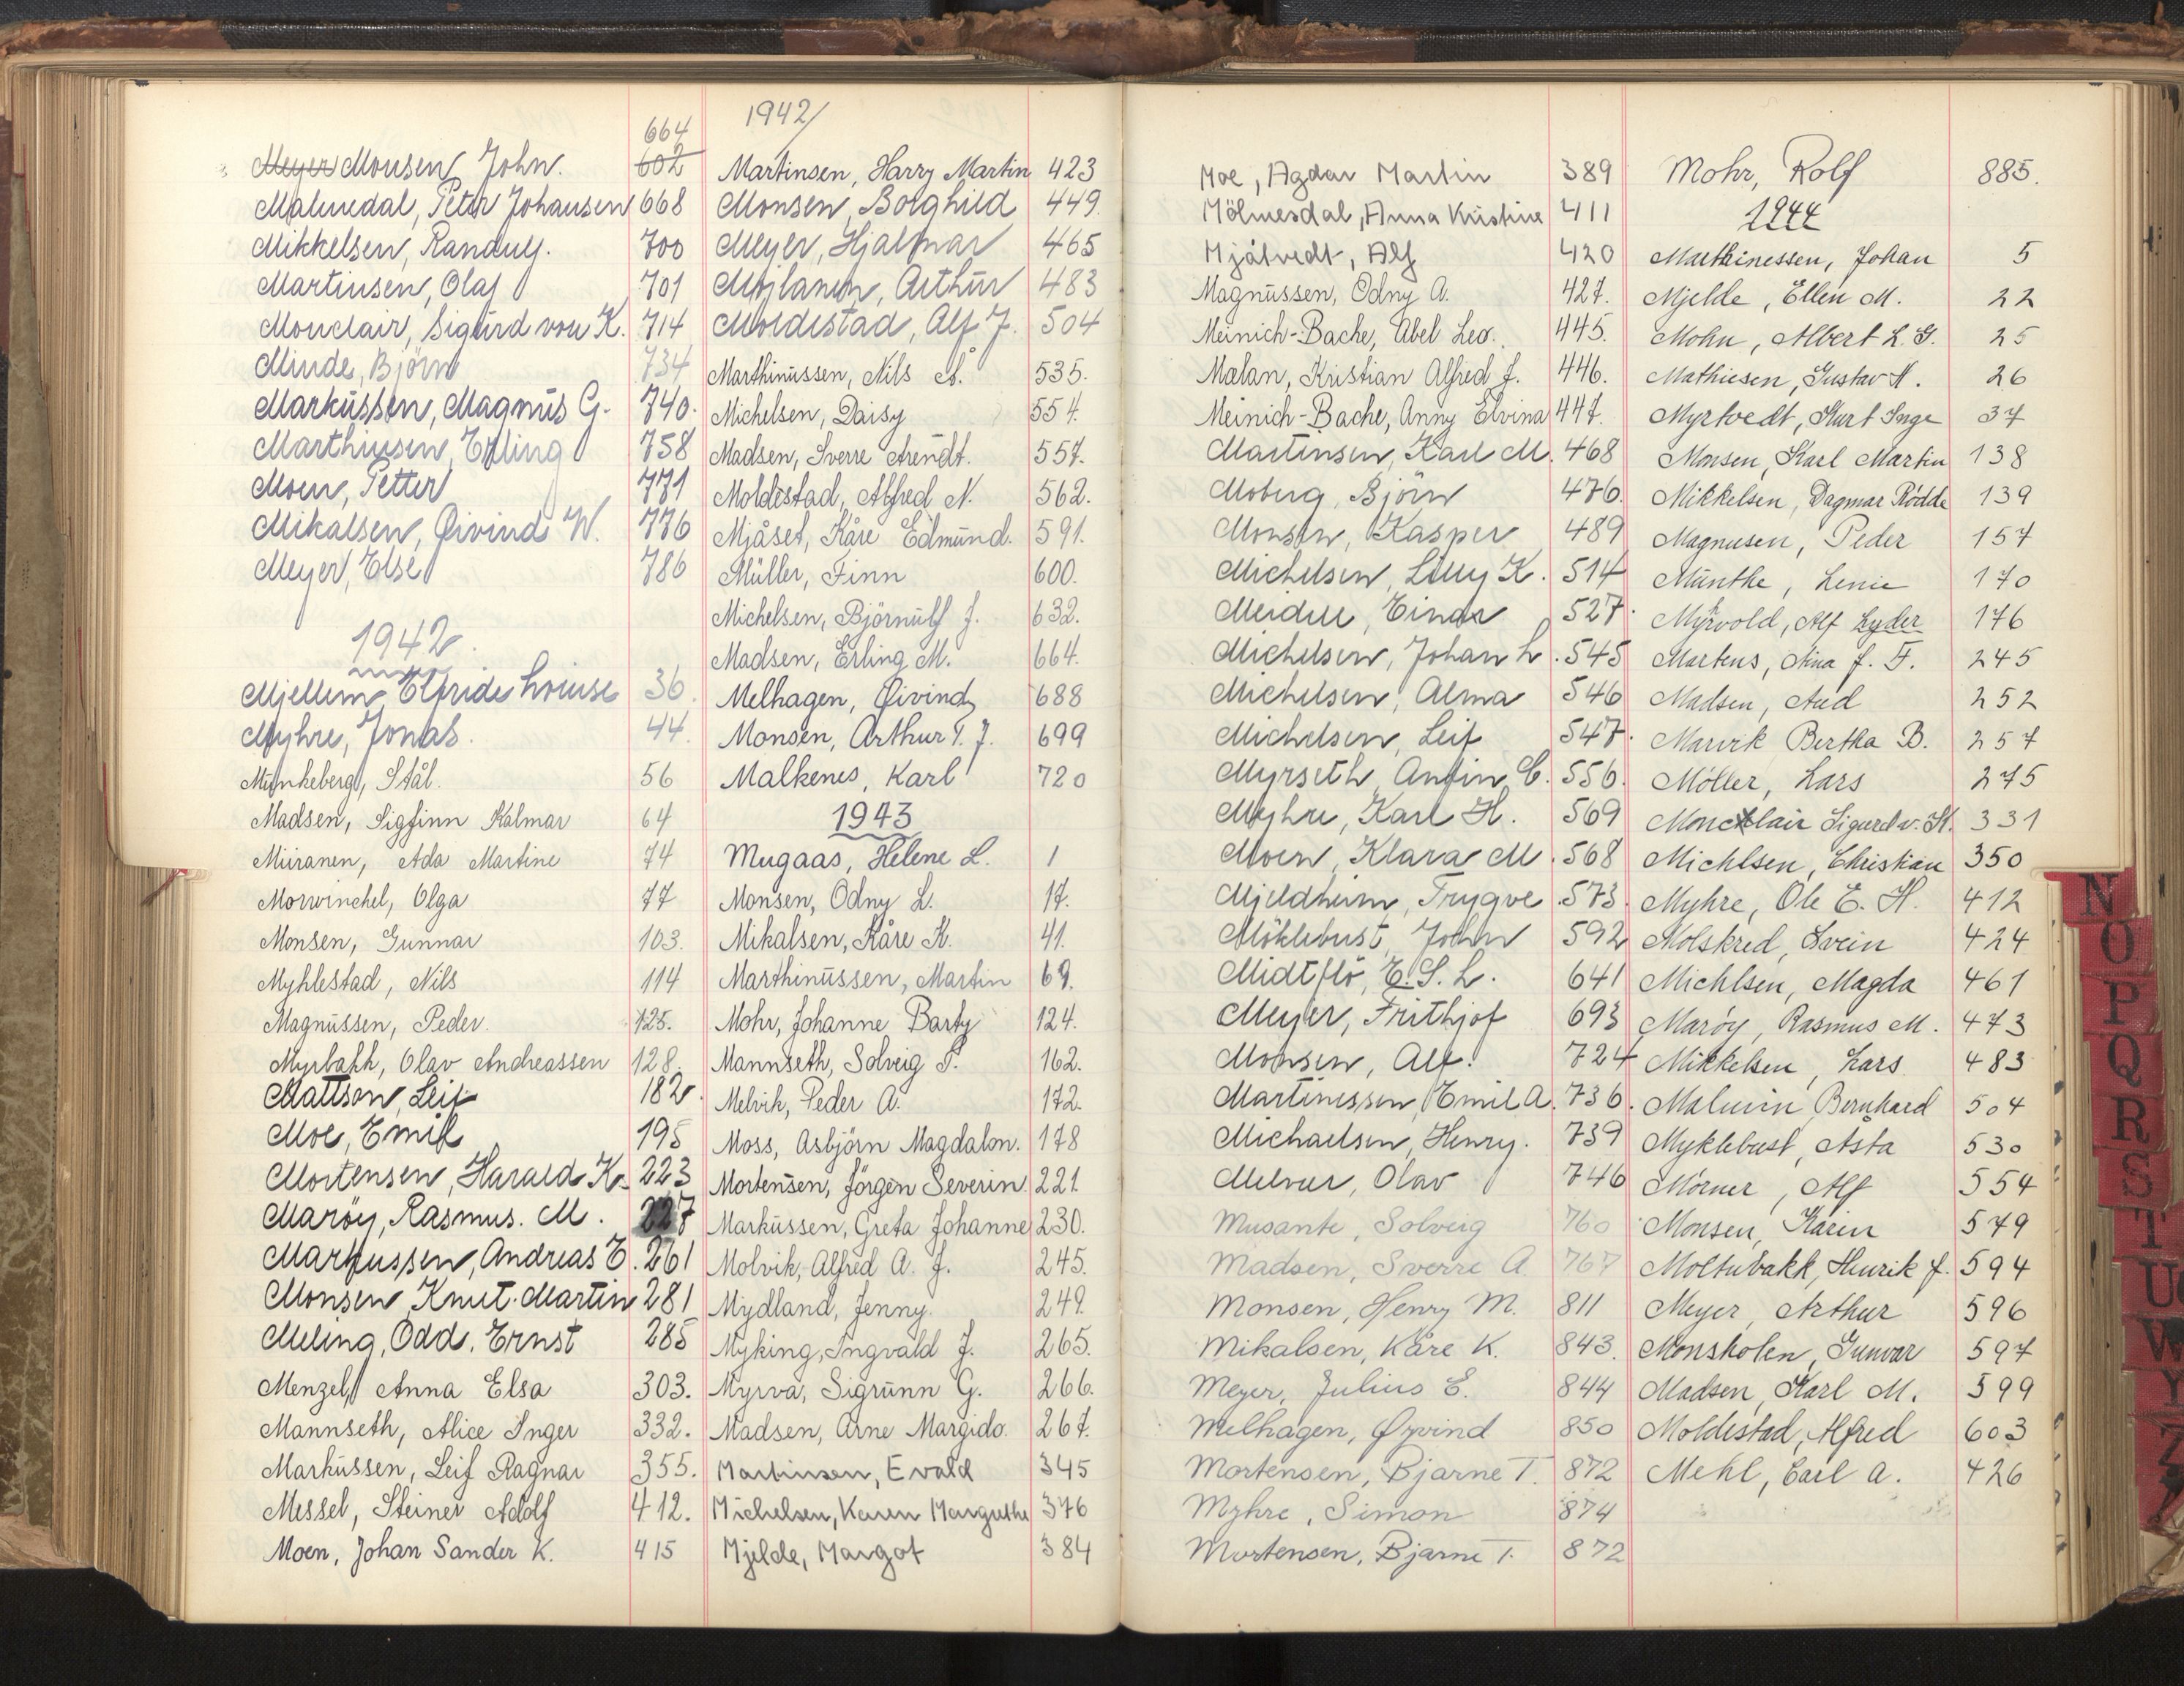 664
Meyer Monsen John. 602
Malmedal, Peter Johansen 668
Mikkelsen, Randug. 700
Martinsen, Olaf 701
Monclair, Sigurd von K. 714
Minde, Björn 734
Markussen, Magnus G. 740.
Marthinsen, Erling 758
Moen, Petter 771
Mikalsen, Øivind W. 776
Meyer, Else 786
1942
Mjellem, Elfride Louise 36.
Myhre, Jonas. 44.
Munkeberg, Stål. 56
Madsen, Sigfinn Kalmar 64
Miiranen, Ada Martine 74
Morwinchel, Olga 77
Monsen, Gunnar 103.
Myhlestad, Nils 114
Magnussen, Peder. 125.
Myrbakk, Olav Andreassen 128.
Mattson, Leif 182.
Moe, Emil 195
Mortensen, Harald K. 223
Marøy, Rasmus. M. 227
Markussen, Andreas E. 261
Monsen Knut. Martin 281
Meling, Odd. Ernst 285
Menzel, Anna Elsa 303.
Mannseth, Alice Inger 332.
Markussen, Leif Ragnar 355.
Messel, Steiner Adolf 412.
Moen, Johan Sander K. 415
1942
Martinsen, Harry Martin 423
Monsen, Borghild 449.
Meyer, Hjalmar 465
Mojlanen, Arthur 483
Moldestad, Alf J. 504
Marthinussen, Nils A. 535.
Michelsen, Daisy 554.
Madsen, Sverre Arendt. 557.
Moldestad, Alfred N. 562.
Mjåset, Kåre Edmund. 591.
Müller, Finn 600.
Michelsen, Björnulf J. 632.
Madsen, Erling M. 664.
Melhagen, Øivind 688
Monsen, Arthur T. J. 699
Malkenes, Karl 720
1943
Mugaas, Helene L. 1
Monsen, Odny L. 17.
Mikalsen, Kåre K. 41.
Marthinussen, Martin 69.
Mohr, Johanne Barty 124.
Mannseth, Solveig S. 162.
Melvik, Peder A. 172.
Moss, Asbjörn Magdalon. 178
Mortensen, Jörgen Severin. 221.
Markussen, Greta Johanne 230.
Molvik, Alfred A. J. 245.
Mydland, Jenny. 249.
Myking, Ingvald J. 265.
Myrva, Sigrunn G. 266.
Madsen, Arne Margido. 267.
Martinsen, Evald 345
Michelsen, Karen Margrethe 376
Mjelde, Margot 384
Moe, Agdar Martin 389
Mölmesdal, Anna Kristine 411
Mjåtvedt, Alf 420
Magnussen, Odny A. 427.
Meinich-Bache, Abel Leo. 445.
Mælan, Kristian Alfred J. 446.
Meinich-Bache, Anny Elvina 447.
Martinsen, Karl M. 468
Moberg, Björn 476.
Monsen, Kasper 489
Michelsen, Lilly K. 514
Meidell, Einar 527.
Michelsen, Johan L. 545
Michelsen, Alma 546
Michelsen, Leif 547.
Myrseth, Anfin C. 556.
Myhre, Karl H. 569
Moen, Klara M. 568
Mjeldheim, Trygve 573.
Möklebust, John 592
Midtflö, E. S. L. 641
Meyer, Frithjof 693
Monsen, Alf. 724
Martinessen, Emil A. 736.
Michaelsen, Henry. 739
Melvær, Olav 746
Musante, Solveig 760
Madsen, Sverre A. 767
Monsen, Henry M. 811
Mikalsen, Kåre K. 843.
Meyer, Julius E. 844
Melhagen, Øyvind 850
Mortensen, Bjarne T. 872
Myhre, Simon 874
Mortensen, Bjarne T. 872
Mohr, Rolf 885.
1944
Marthinessen, Johan 5
Mjelde, Ellen M. 22
Mohn, Albert L. G. 25
Mathiesen, Gustav A. 26
Myrtvedt, Kurt Inge 37
Monsen, Karl Martin 138
Mikkelsen, Dagmar Rödde 139
Magnusen, Peder 157
Münthe, Lenie 170
Myrvold, Alf Lyder 176
Martens, Nina J. F. 245
Madsen, Aud 252
Marvik Bertha B. 257
Möller, Lars 275
Monclair Sigurd v. K. 331
Michlsen, Christian 350
Myhre, Ole E. H. 412
Molskred, Svein 424
Michlsen, Magda 461
Marøy, Rasmus M. 473
Mikkelsen, Lars 483
Malmin Bernhard 504
Myklebust, Asta 530
Mörner, Alf 554
Monsen, Karin 579
Moltubakk, Henrik J. 594
Meyer, Arthur 596
Monsholen, Gunvar 597
Madsen, Karl M. 599
Moldestad, Alfred 603
Mehl, Carl A. 426
N
O
P
Q
R
S
T
U
W
Y
Z